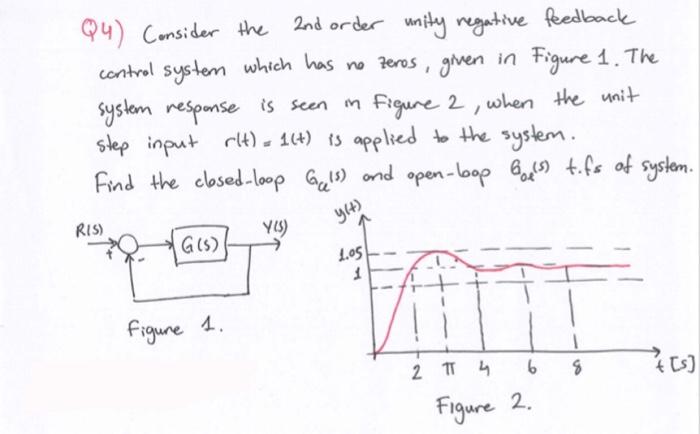 Q4) Consider the 2nd order unity negative feedback
control system which has no zeros, given in Figure 1. The
system response is seen in Figure 2, when the unit
step input r(t) = 1(t) is applied to the system.
Find the closed-loop Gcl(s) and open-loop Gol(s) t.fs of system.
R(s)
+
-
G(s)
Y(s)
Figure 1.
y(t)
1.05
1
2 π 4 6 8 t [s]
Figure 2.